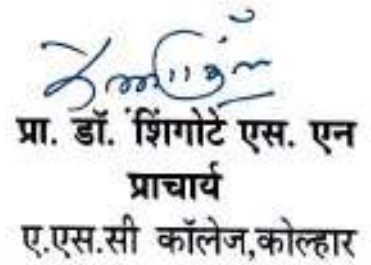 प्रा. डॉ. शिंगोटे एस. एन
प्राचार्य
ए.एस.सी कॉलेज,कोल्हार